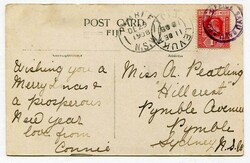 POST CARD
FIJI
LEVUKA
Wishing you a
Merry Xmas &
a prosperous
New Year
love from
Connie
Miss A. Peatling
"Hillcrest"
Pymble Avenue
Pymble
Sydney
N.S.W